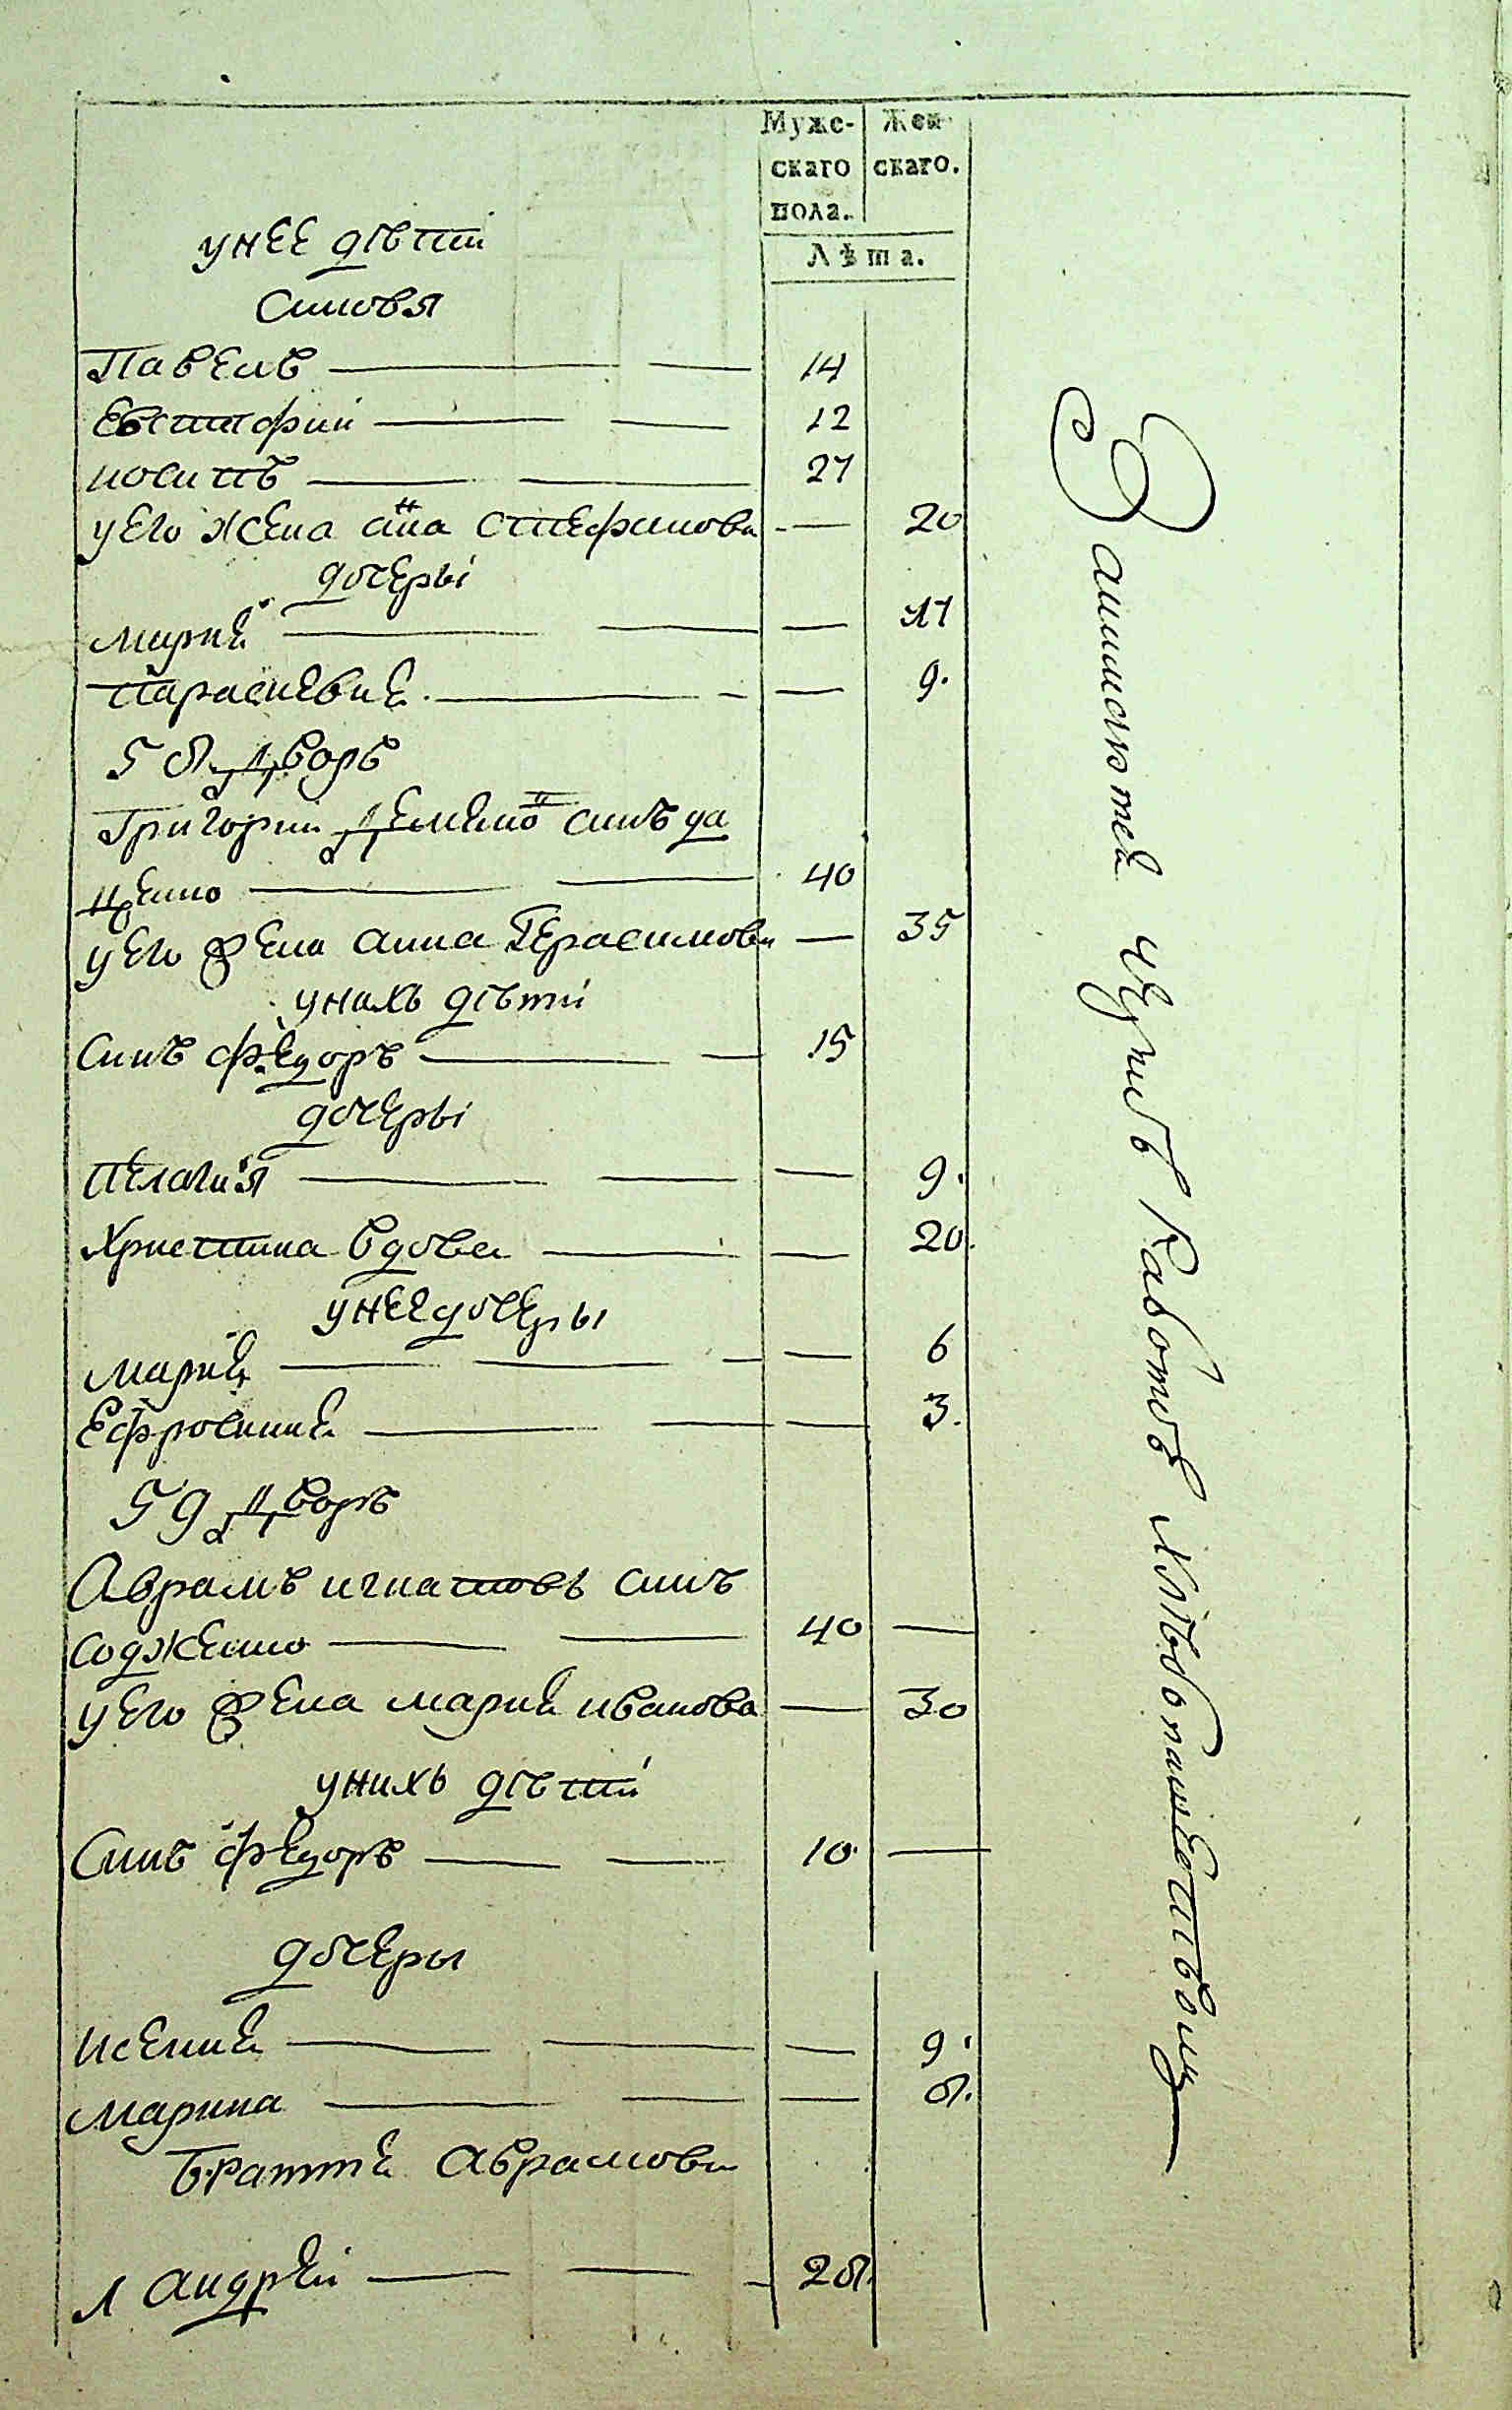 Мужс-
скаго
пола.
Жен-
скаго.
Лѣта.
унее дѣти
синовя
Павелъ 14
Евстафии 12
иосипъ 27
уего жена анна стефанова 20
дочеры
Мария 11
Параскевия 9.
58 Дворъ
Григории Деменю синъ да
ценко 40
уего жена анна Герасимова 35
унихъ дѣти
Синъ федоръ 15
дочеры
Пелагия 9.
Христина вдова 20.
унее дочеры
Мария 6
Ефросиния 3.
59 Дворъ
Аврамъ игнатовъ синъ
40
уего жена мария иванова 30
унихъ дѣти
Синъ федоръ 10.
дочеры
Исения 9.
Марина 8.
Братия Аврамови
1 андрей 28.
Занимаютей чернъ работъ хлѣбопашествомъ